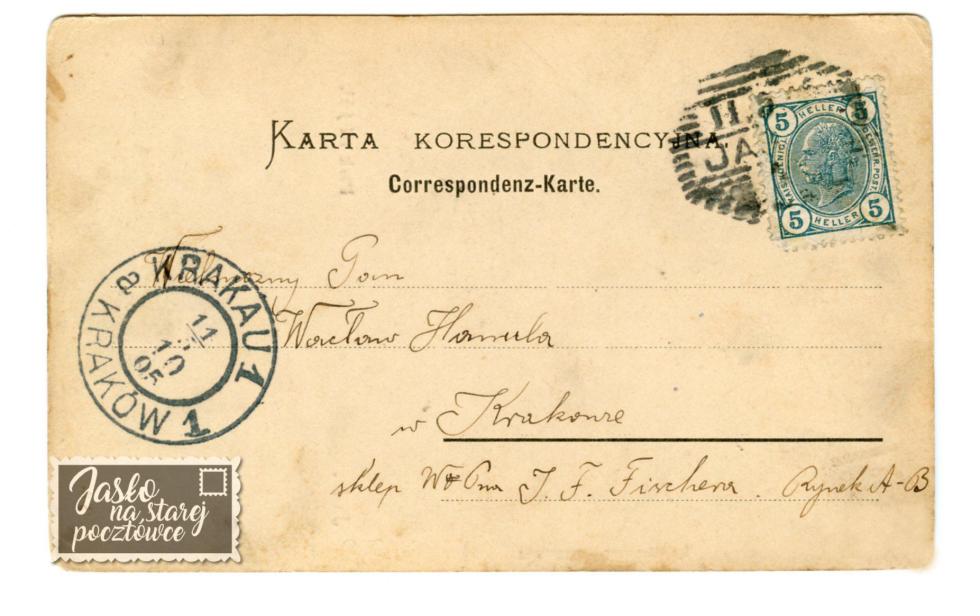 KARTA KORESPONDENCYJNA.
Correspondenz-Karte.
11.
JA
5 HELLER 5
KAIS.KÖNIGL. OESTERR.POST.
5 HELLER 5
Wielmożny Pan
Wacław Hamula
w Krakowie
sklep W Pna J. F. Fischera. Rynek A-B
KRAKAU 1
a KRAKÓW 1
11
10
05
Jasło
na starej
pocztówce